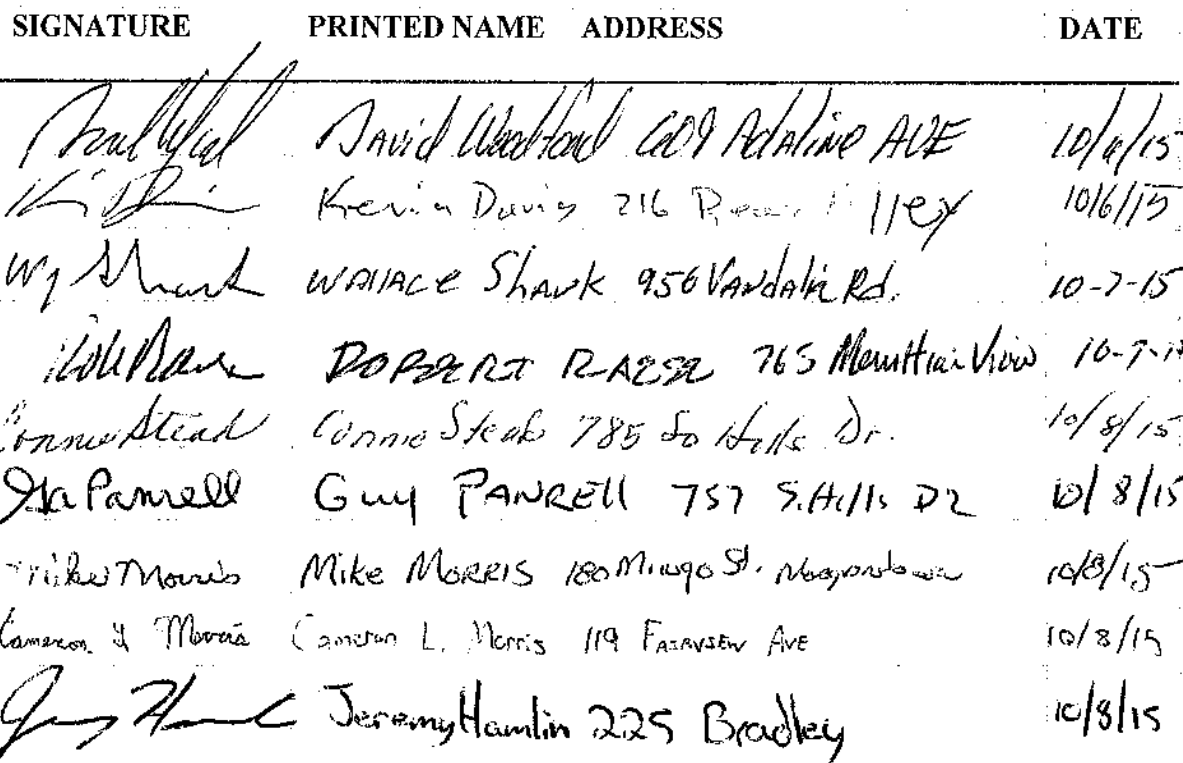 SIGNATURE PRINTED NAME ADDRESS DATE
David Woodford 609 Adaline AVE 10/6/15
Kevin Davis 216 10/6/15
Wy Shank WALLACE Shank 956 Vandalia Rd. 10-7-15
765 View
Connie Stead Connie Stead 785 So Hills Dr. 10/8/15
Guy PANRELL 757 S. Hills DR 10/8/15
Mike Morris Mike MORRIS 180 Mingo St. 10/8/15
Cameron L Morris Cameron L. Morris 119 FAIRVIEW AVE 10/8/15
Jeremy Hamlin 225 Bradley 10/8/15